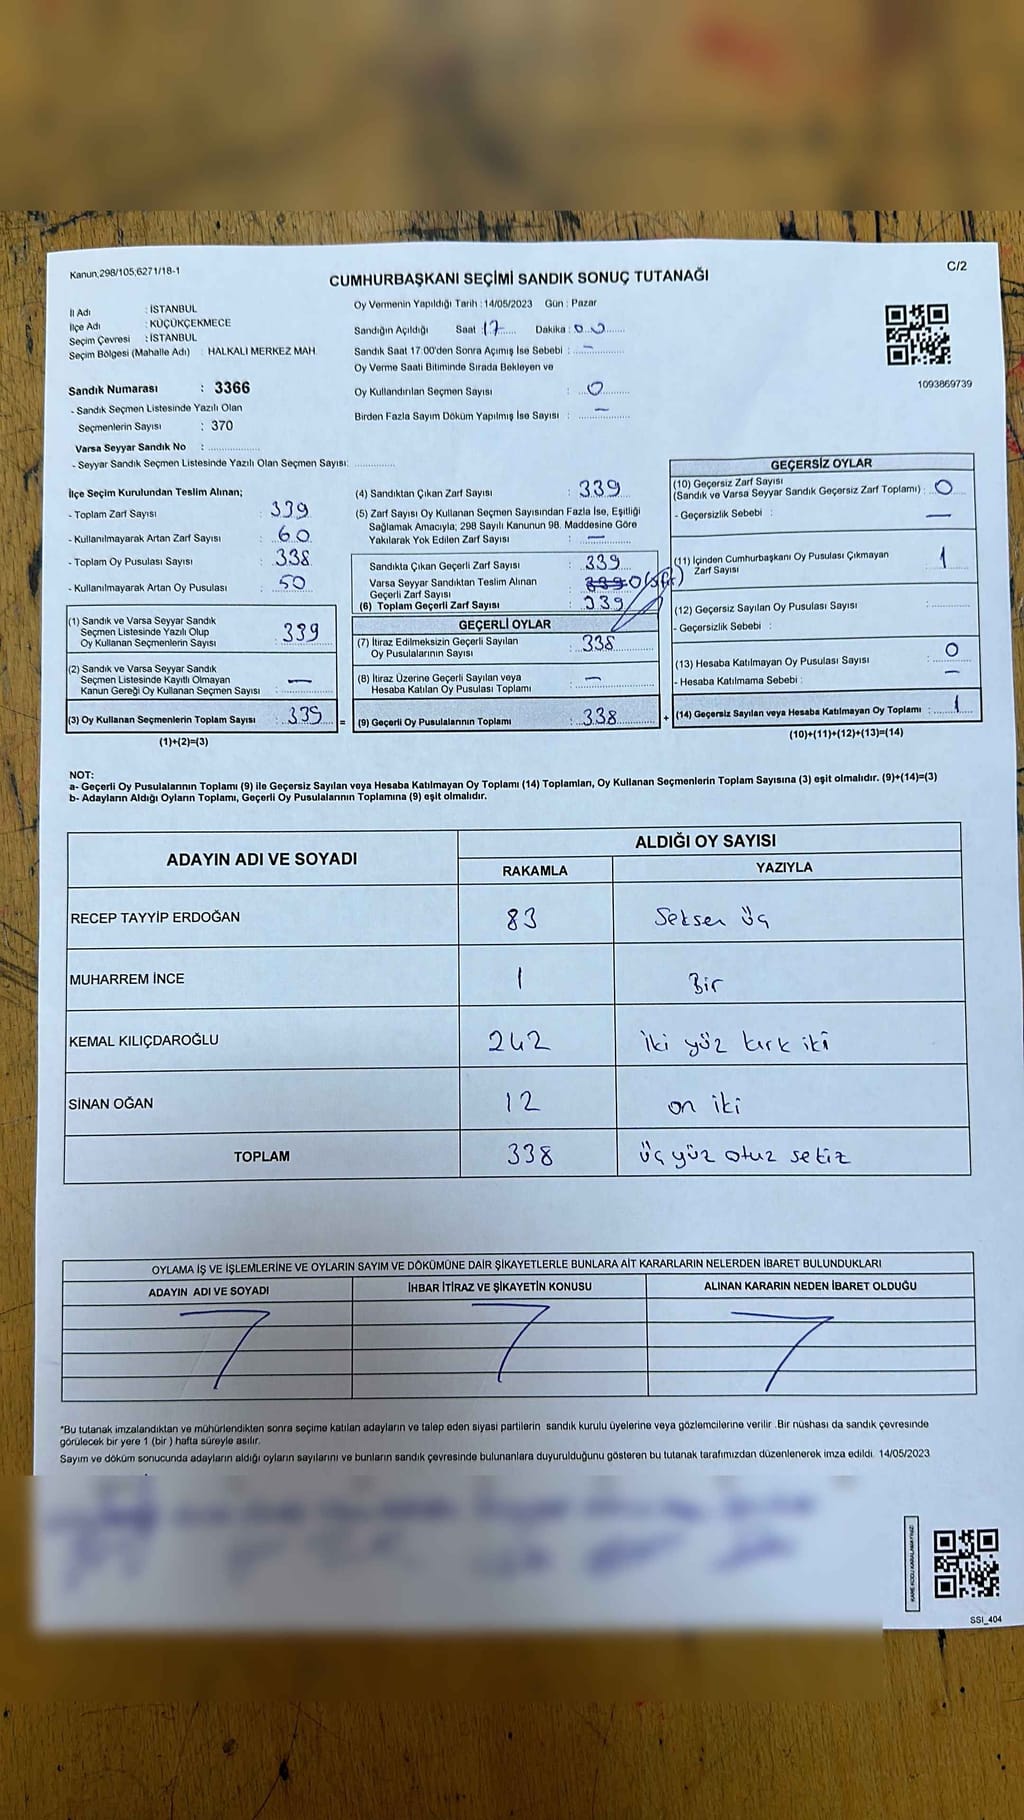 Kanun,298/105,6271/18-1
C/2
CUMHURBAŞKANI SEÇİMİ SANDIK SONUÇ TUTANAĞI
İl Adı : İSTANBUL
İlçe Adı : KÜÇÜKÇEKMECE
Seçim Çevresi : İSTANBUL
Seçim Bölgesi (Mahalle Adı) : HALKALI MERKEZ MAH.
Sandık Numarası : 3366
- Sandık Seçmen Listesinde Yazılı Olan
Seçmenlerin Sayısı : 370
Varsa Seyyar Sandık No :
- Seyyar Sandık Seçmen Listesinde Yazılı Olan Seçmen Sayısı:
Oy Vermenin Yapıldığı Tarih : 14/05/2023 Gün : Pazar
Sandığın Açıldığı Saat : 17 Dakika : 00
Sandık Saat 17:00'den Sonra Açımış İse Sebebi : -
Oy Verme Saati Bitiminde Sırada Bekleyen ve
Oy Kullandırılan Seçmen Sayısı : 0
Birden Fazla Sayım Döküm Yapılmış İse Sayısı : -
1093869739
İlçe Seçim Kurulundan Teslim Alınan;
- Toplam Zarf Sayısı : 339
- Kullanılmayarak Artan Zarf Sayısı : 60
- Toplam Oy Pusulası Sayısı : 338
- Kullanılmayarak Artan Oy Pusulası : 50
(1) Sandık ve Varsa Seyyar Sandık
Seçmen Listesinde Yazılı Olup
Oy Kullanan Seçmenlerin Sayısı : 339
(2) Sandık ve Varsa Seyyar Sandık
Seçmen Listesinde Kayıtlı Olmayan
Kanun Gereği Oy Kullanan Seçmen Sayısı : -
(3) Oy Kullanan Seçmenlerin Toplam Sayısı : 339 =
(1)+(2)=(3)
(4) Sandıktan Çıkan Zarf Sayısı : 339
(5) Zarf Sayısı Oy Kullanan Seçmen Sayısından Fazla İse, Eşitliği
Sağlamak Amacıyla; 298 Sayılı Kanunun 98. Maddesine Göre
Yakılarak Yok Edilen Zarf Sayısı : -
Sandıkta Çıkan Geçerli Zarf Sayısı : 339
Varsa Seyyar Sandıktan Teslim Alınan
Geçerli Zarf Sayısı : 339 0 (sıfır)
(6) Toplam Geçerli Zarf Sayısı : 339
GEÇERLİ OYLAR
(7) İtiraz Edilmeksizin Geçerli Sayılan
Oy Pusulalarının Sayısı : 338
(8) İtiraz Üzerine Geçerli Sayılan veya
Hesaba Katılan Oy Pusulası Toplamı : -
(9) Geçerli Oy Pusulalarının Toplamı : 338 +
GEÇERSİZ OYLAR
(10) Geçersiz Zarf Sayısı
(Sandık ve Varsa Seyyar Sandık Geçersiz Zarf Toplamı) : 0
- Geçersizlik Sebebi : -
(11) İçinden Cumhurbaşkanı Oy Pusulası Çıkmayan
Zarf Sayısı : 1
(12) Geçersiz Sayılan Oy Pusulası Sayısı :
- Geçersizlik Sebebi :
(13) Hesaba Katılmayan Oy Pusulası Sayısı : 0
- Hesaba Katılmama Sebebi : -
(14) Geçersiz Sayılan veya Hesaba Katılmayan Oy Toplamı : 1
(10)+(11)+(12)+(13)=(14)
NOT:
a- Geçerli Oy Pusulalarının Toplamı (9) ile Geçersiz Sayılan veya Hesaba Katılmayan Oy Toplamı (14) Toplamları, Oy Kullanan Seçmenlerin Toplam Sayısına (3) eşit olmalıdır. (9)+(14)=(3)
b- Adayların Aldığı Oyların Toplamı, Geçerli Oy Pusulalarının Toplamına (9) eşit olmalıdır.
ADAYIN ADI VE SOYADI ALDIĞI OY SAYISI
RAKAMLA YAZIYLA
RECEP TAYYİP ERDOĞAN 83 Seksen üç
MUHARREM İNCE 1 Bir
KEMAL KILIÇDAROĞLU 242 iki yüz kırk iki
SİNAN OĞAN 12 on iki
TOPLAM 338 üç yüz otuz sekiz
OYLAMA İŞ VE İŞLEMLERİNE VE OYLARIN SAYIM VE DÖKÜMÜNE DAİR ŞİKAYETLERLE BUNLARA AİT KARARLARIN NELERDEN İBARET BULUNDUKLARI
ADAYIN ADI VE SOYADI İHBAR İTİRAZ VE ŞİKAYETİN KONUSU ALINAN KARARIN NEDEN İBARET OLDUĞU
*Bu tutanak imzalandıktan ve mühürlendikten sonra seçime katılan adayların ve talep eden siyasi partilerin sandık kurulu üyelerine veya gözlemcilerine verilir .Bir nüshası da sandık çevresinde
görülecek bir yere 1 (bir ) hafta süreyle asılır.
Sayım ve döküm sonucunda adayların aldığı oyların sayılarını ve bunların sandık çevresinde bulunanlara duyurulduğunu gösteren bu tutanak tarafımızdan düzenlenerek imza edildi. 14/05/2023
SSI_404